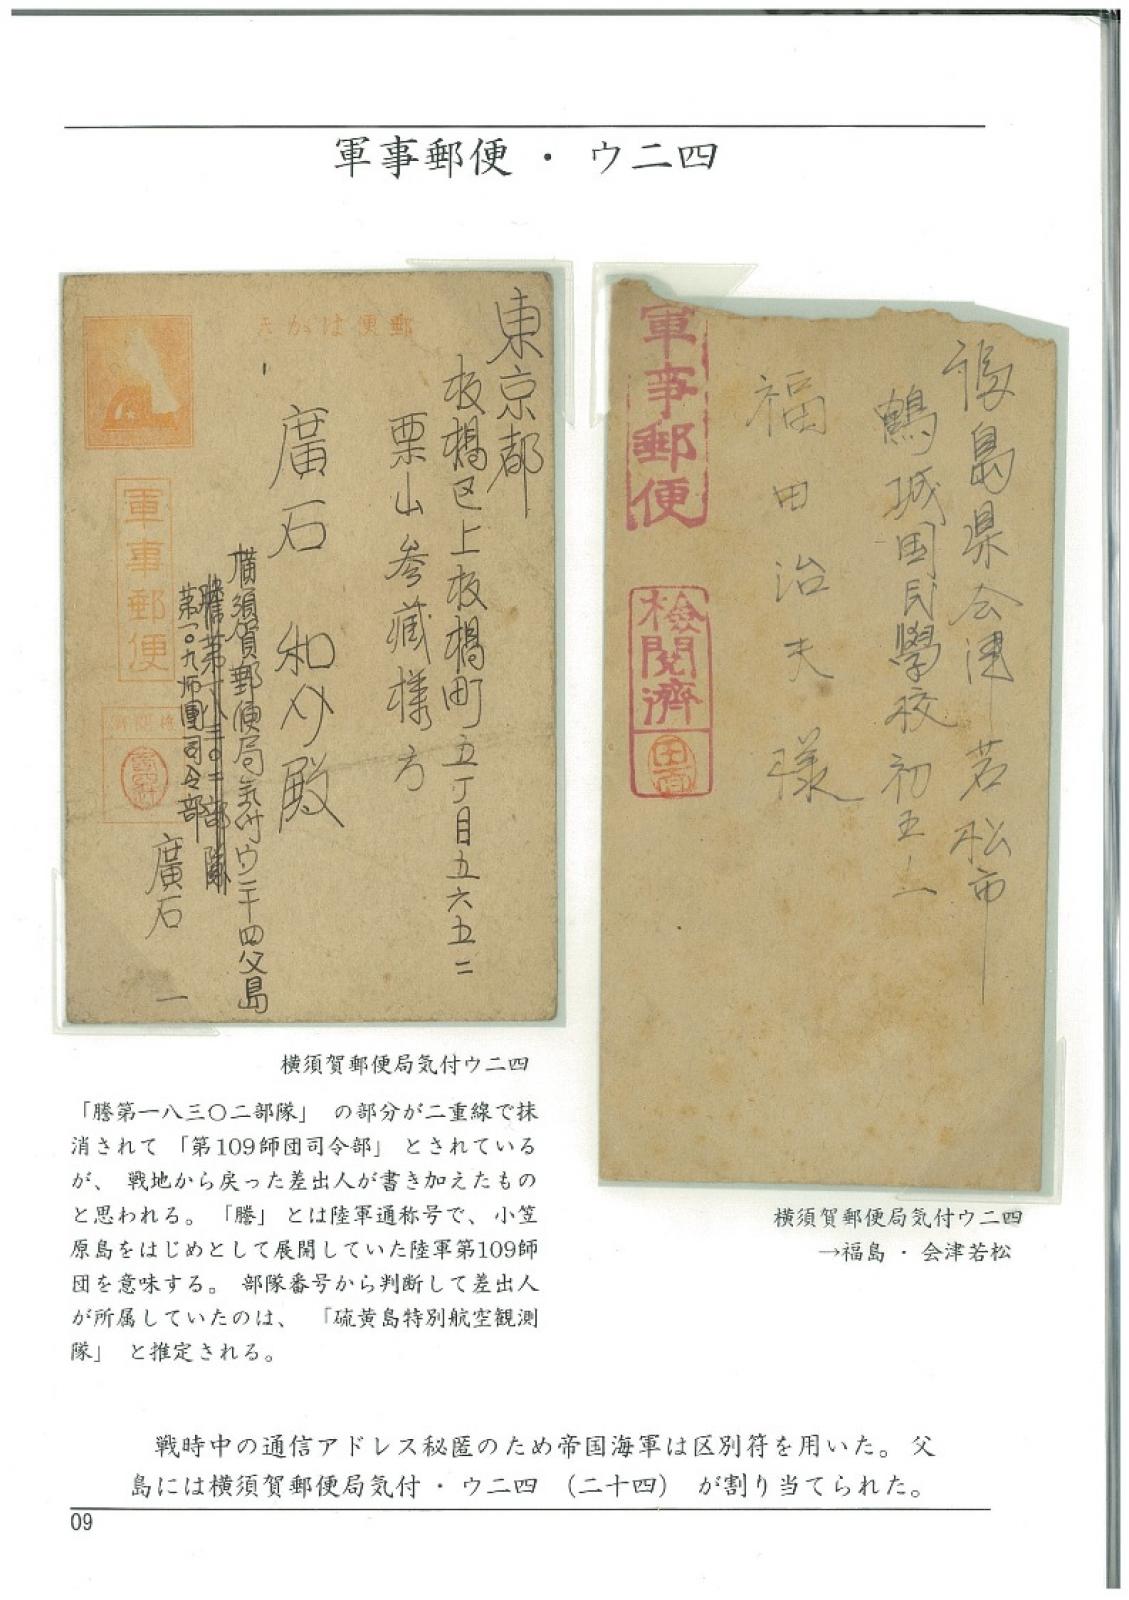 軍事郵便・ウ二四
郵便はがき
東京都
板橋区上板橋町五丁目五六五二
栗山参蔵様方
廣石和夕殿
横須賀郵便局気付ウ二十四父島
騰第一八三〇二部隊
第一〇九师團司令部
廣石一
軍事郵便
検閲済
軍事郵便
検閲濟
福島県会津若松市
鶴城国民學校初五ノ一
福田治夫様
横須賀郵便局気付ウ二四
「謄第一八三〇二部隊」 の部分が二重線で抹
消されて 「第109師団司令部」 とされている
が、 戦地から戻った差出人が書き加えたもの
と思われる。 「謄」 とは陸軍通称号で、小笠
原島をはじめとして展開していた陸軍第109師
団を意味する。 部隊番号から判断して差出人
が所属していたのは、 「硫黄島特別航空観測
隊」 と推定される。
横須賀郵便局気付ウ二四
→福島・会津若松
戦時中の通信アドレス秘匿のため帝国海軍は区別符を用いた。父
島には横須賀郵便局気付・ウ二四 （二十四） が割り当てられた。
09